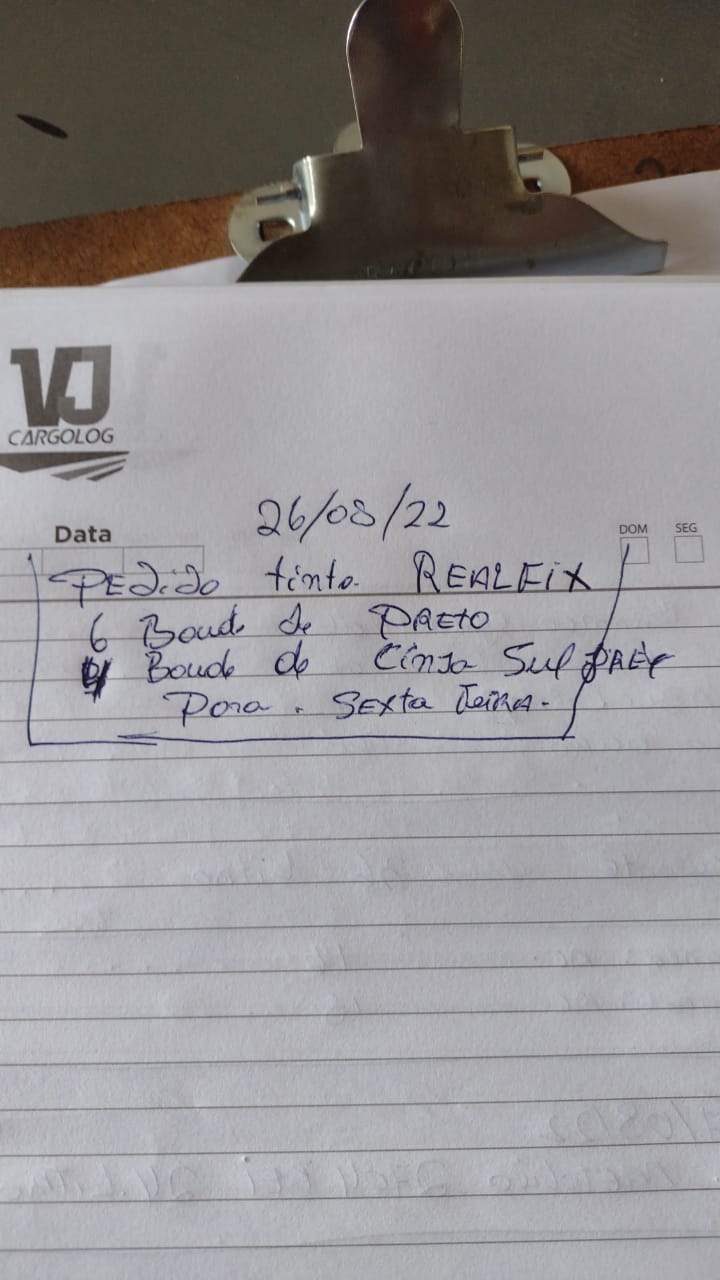 VJ
CARGOLOG
26/08/22
Data
DOM SEG
PEdido tinta. REALFIX
6 Boude de PRETO
Boude de Cinza Sul
Para. SExta Feira.